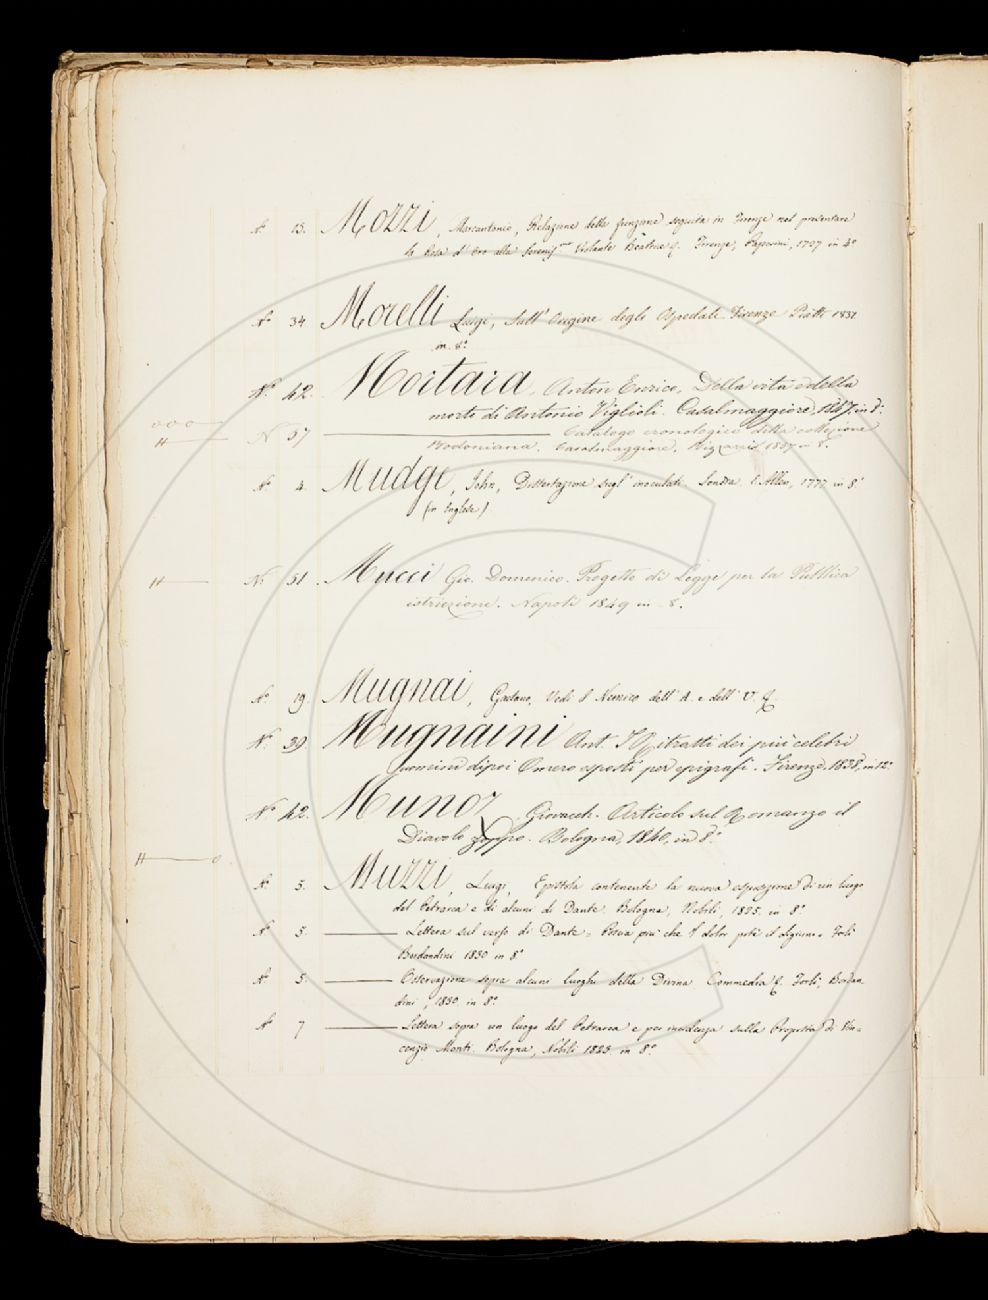 N.° 13. Mozzi, Marcantonio, Relazione delle funzione seguita in Firenze nel presentare
la Rosa d' Oro alla Serenis.ma Violante Beatrice &. Firenze, 1707 in 4°
N.° 34 Morelli Luigi, Sull' Origine degli Ospedali Firenze Piatti 1832
in 8.°
N.° 42. Mortara, Anton Enrico, Della vita e della
morte di Antonio Viglioli. Casalmaggiore, 1847, in 8.°
N 37 Catalogo cronologico della collezione
Bodoniana. Casalmaggiore, 1837 in 8.°
N.° 4. Mudge, John, Dissertazione sugl' inoculati. Londra E. Allen, 1777 in 8°
(in Inglese)
N.° 51. Mucci Gio. Domenico. Progetto di Legge per la Pubblica
istruzione. Napoli 1849 in 8.
N.° 19. Mugnai, Gaetano, Vedi I Nemico dell' A. e dell' V. &
N.° 39. Mugnaini Ant. I Ritratti dei più celebri
uomini dipoi Omero esposti per epigrafi. Firenze, 1838, in 12.°
N.° 42. Munoz. Giovacch. Articolo sul Romanzo il
Diavolo Zoppo. Bologna, 1840, in 8.°
N.° 5. Muzzi, Luigi, Epistola contenente la nuova esposizione di un luogo
del Petrarca e di alcuni di Dante. Bologna, Nobili, 1825. in 8.°
N.° 5. Lettera sul verso di Dante = Poscia più che 'l dolor potè il digiuno. Forlì
Bordandini 1830 in 8°
N.° 5. Osservazione sopra alcuni luoghi della Divina Commedia &. Forlì, Bordan
dini, 1830, in 8.°
N.° 7 Lettera sopra un luogo del Petrarca e per incidenza sulla Proposta di Vin=
cenzio Monti. Bologna, Nobili 1825. in 8.°